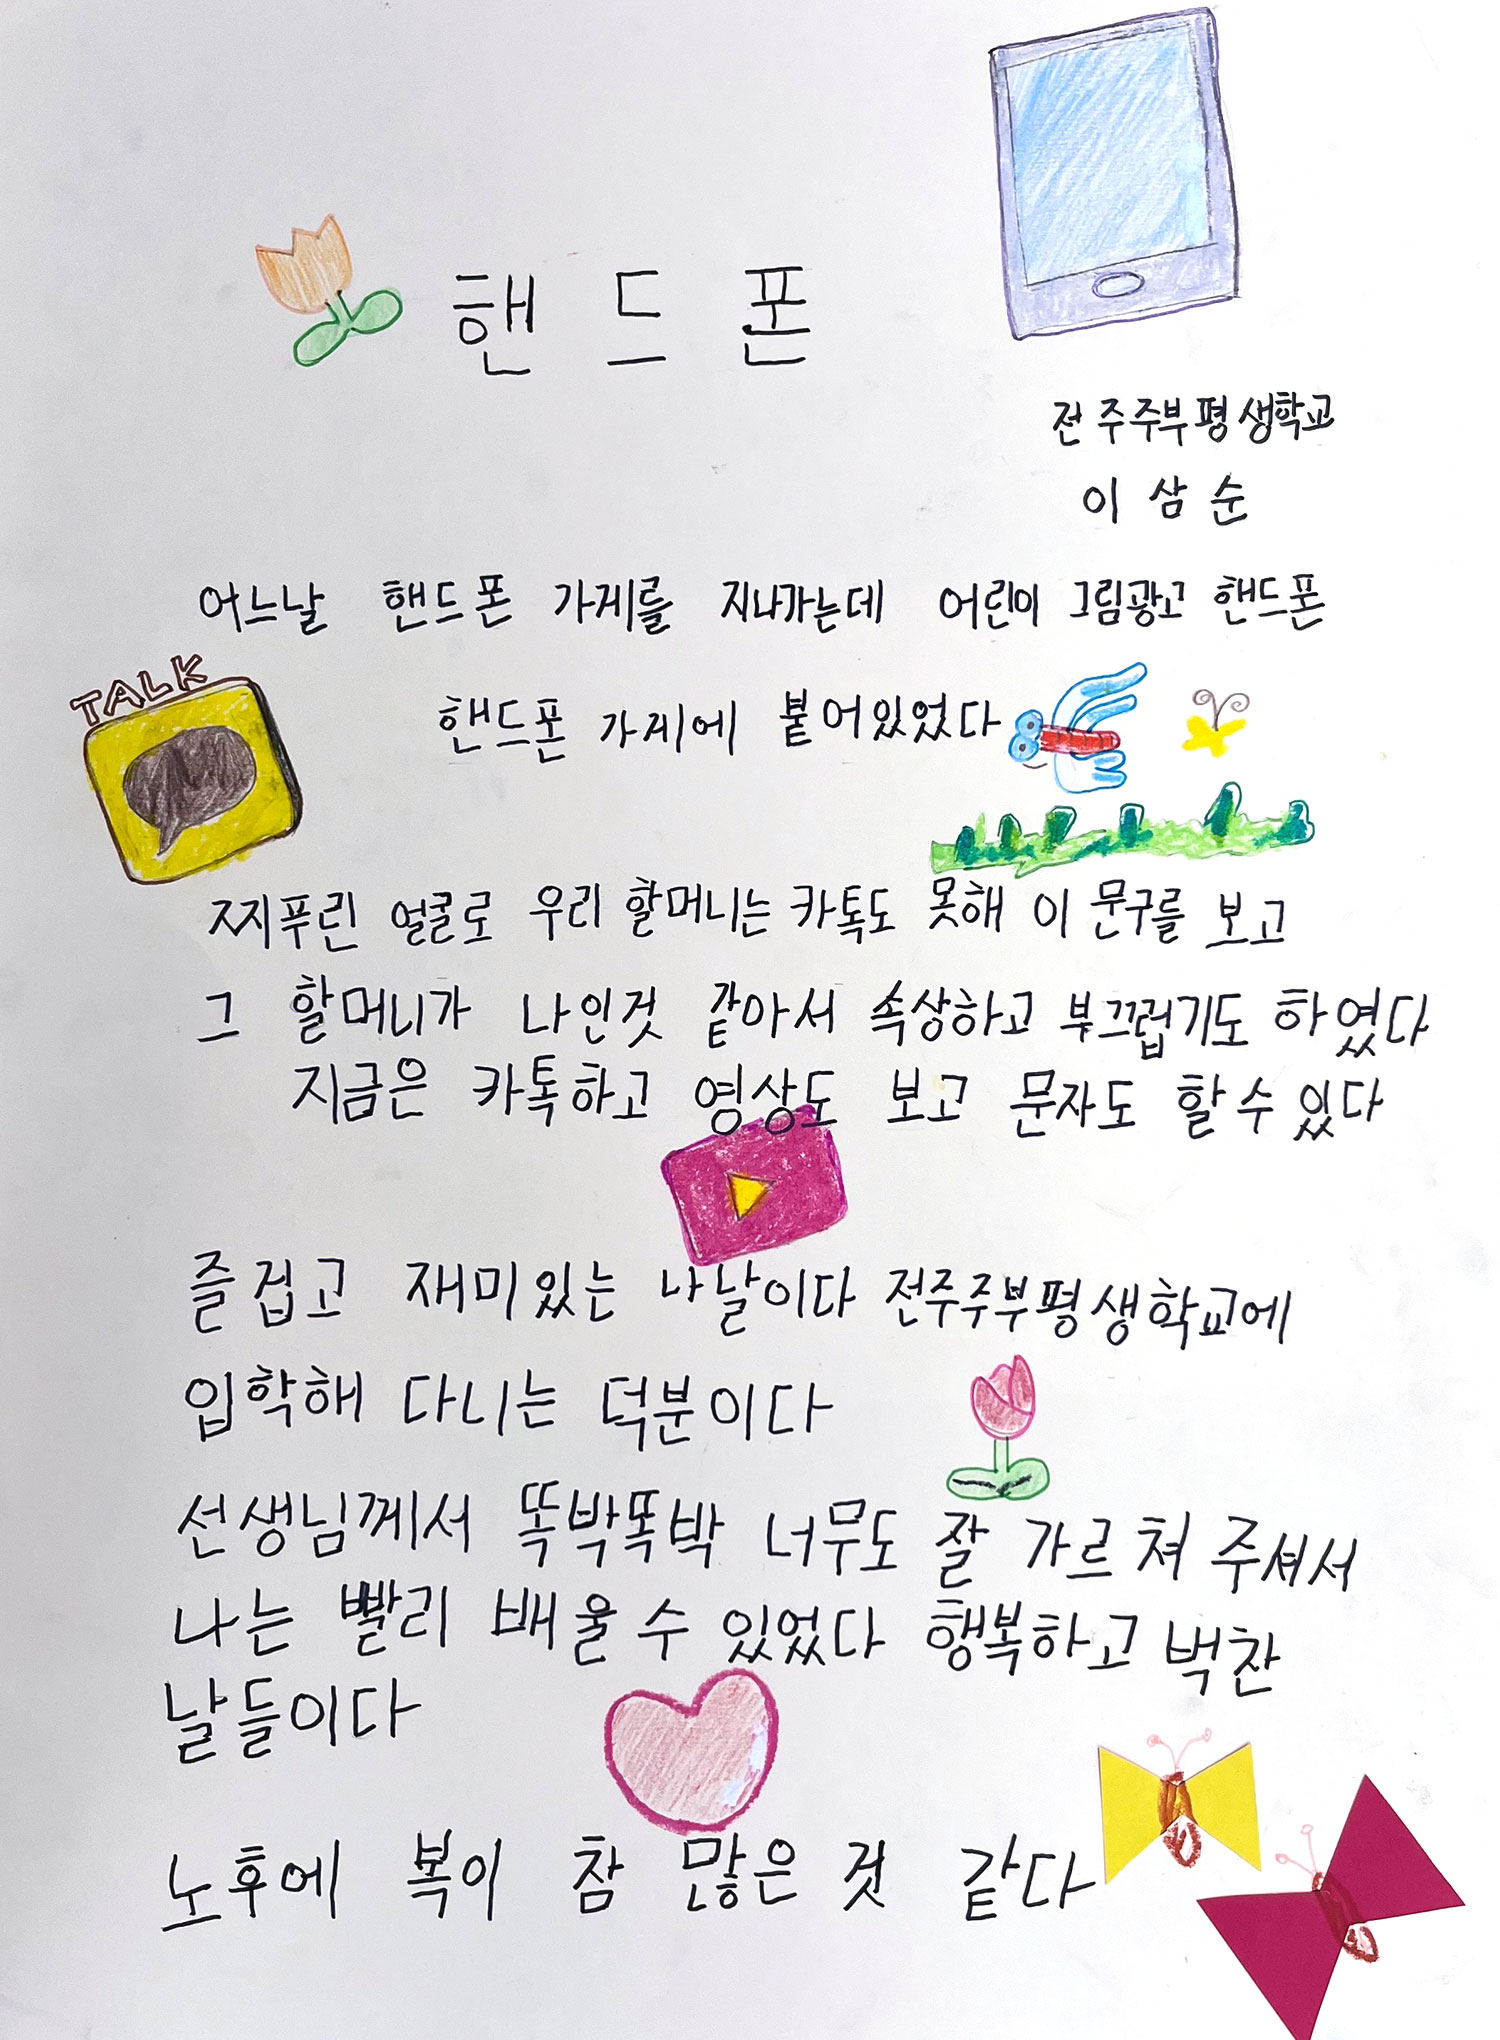 핸드폰
전주주부평생학교
이삼순
어느날 핸드폰 가게를 지나가는데 어린이 그림광고 핸드폰
TALK
핸드폰 가게에 붙어있었다
찌푸린 얼굴로 우리 할머니는 카톡도 못해 이 문구를 보고
그 할머니가 나인것 같아서 속상하고 부끄럽기도 하였다
지금은 카톡하고 영상도 보고 문자도 할수있다
즐겁고 재미있는 나날이다 전주주부평생학교에
입학해 다니는 덕분이다
선생님께서 똑박똑박 너무도 잘 가르쳐 주셔서
나는 빨리 배울수 있었다 행복하고 벅찬
날들이다
노후에 복이 참 많은 것 같다